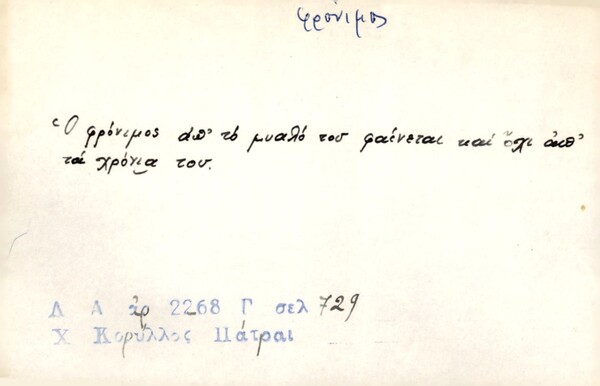 φρόνιμος
Ὁ φρόνιμος ἀπ' τὸ μυαλό του φαίνεται καὶ ὄχι ἀπ'
τὰ χρόνια του.
Λ Α ἀρ 2268 Γ σελ 729
Χ Κορύλλος Πάτραι